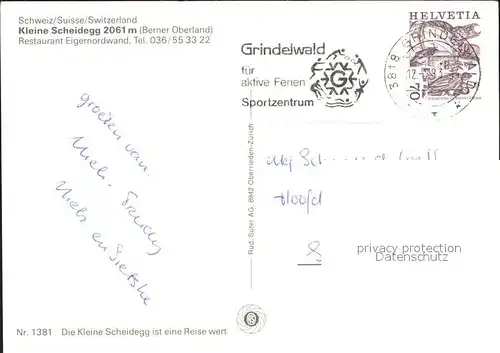 Schweiz/Suisse/Switzerland
Kleine Scheidegg 2061 m (Berner Oberland)
Restaurant Eigernordwand. Tel. 036/55 33 22
Grindelwald
für
aktive Ferien
Sportzentrum
G
HELVETIA
3818 GRINDELWALD
70
groeten van.
Niels en Sietske
Hoofd
8
privacy protection
DVACMKREMSL
Rud. Suter AG, 8942 Oberrieden-Zürich
Nr. 1381 Die Kleine Scheidegg ist eine Reise wert